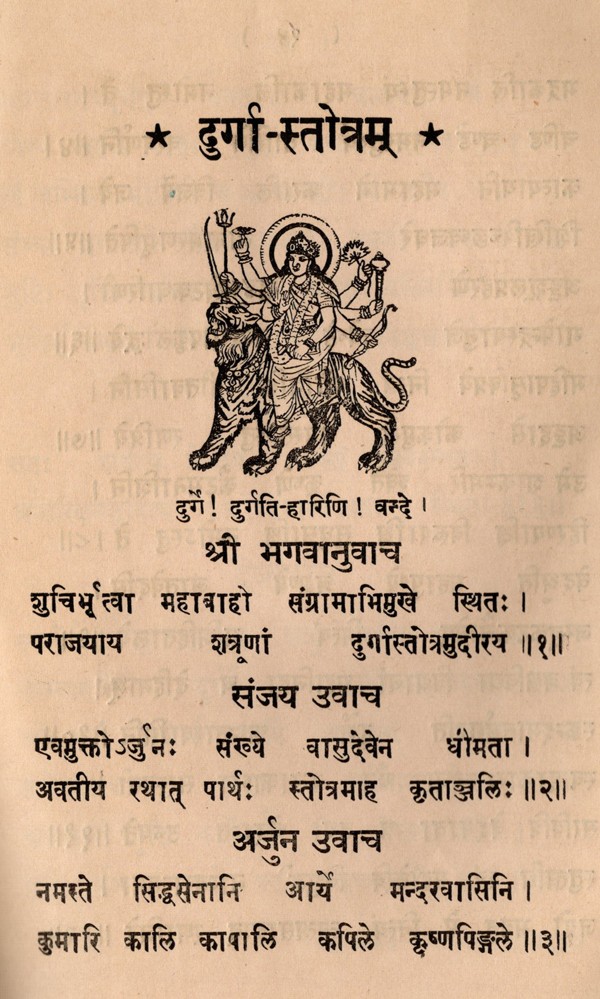 ★ दुर्गा-स्तोत्रम् ★
दुर्गे! दुर्गति-हारिणि! वन्दे।
श्री भगवानुवाच
शुचिर्भूत्वा महाबाहो संग्रामाभिमुखे स्थितः।
पराजयाय शत्रूणां दुर्गास्तोत्रमुदीरय॥१॥
संजय उवाच
एवमुक्तोऽर्जुनः संख्ये वासुदेवेन धीमता।
अवतीय रथात् पार्थः स्तोत्रमाह कृताञ्जलिः॥२॥
अर्जुन उवाच
नमस्ते सिद्धसेनानि आर्ये मन्दरवासिनि।
कुमारि कालि कापालि कपिले कृष्णपिङ्गले॥३॥